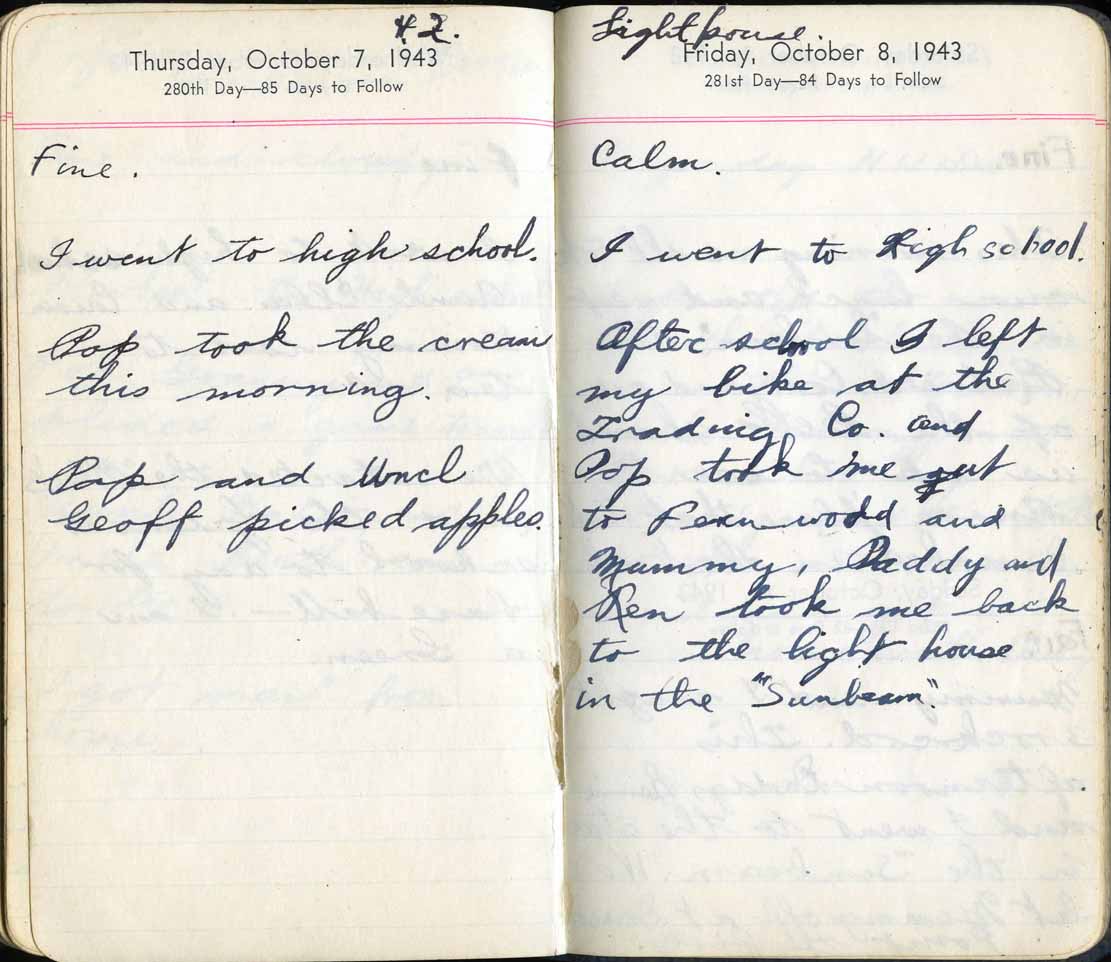 H.2.
Thursday, October 7, 1943
280th Day—85 Days to Follow
Fine.
I went to high school.
Pop took the cream
this morning.
Pop and Uncl
Geoff picked apples.
Lighthouse.
Friday, October 8, 1943
281st Day—84 Days to Follow
Calm.
I went to High school.
After school I left
my bike at the
Trading Co. and
Pop took me out
to Fernwood and
Mummy, Daddy and
Ren took me back
to the light house
in the "Sunbeam".